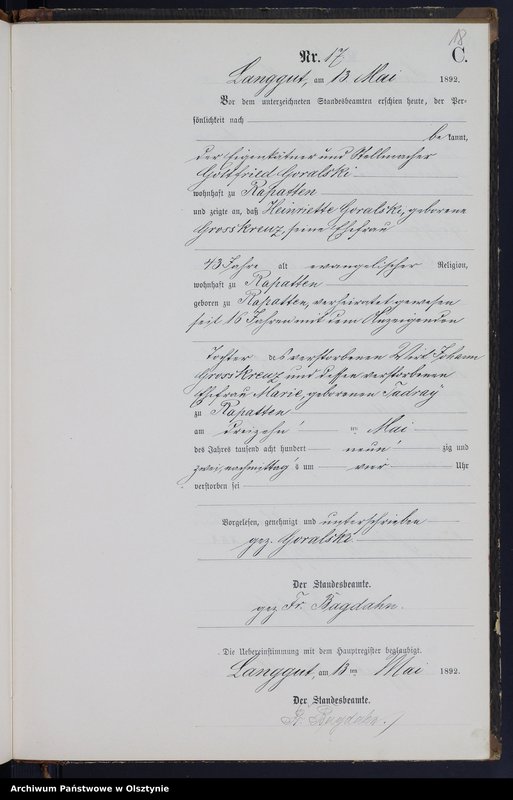 18
Nr. 17
C.
Langgut, am 13. Mai 1892.
Vor dem unterzeichneten Standesbeamten erschien heute, der Per-
sönlichkeit nach
bekannt,
der Eigenkätner und Stellmacher
Gottfried Goralski
wohnhaft zu Rapatten
und zeigte an, daß Heinriette Goralski, geborene
Grosskreuz, seine Ehefrau
43 Jahre alt evangelischer Religion,
wohnhaft zu Rapatten
geboren zu Rapatten, verheiratet gewesen
seit 16 Jahren mit dem Anzeigenden
Tochter des verstorbenen Wirt Johann
Grosskreuz und dessen verstorbenen
Ehefrau Marie, geborenen
zu Rapatten
am dreizehn ten Mai
des Jahres tausend acht hundert neun zig und
zwei, nachmittags um vier Uhr
verstorben sei
Vorgelesen, genehmigt und unterschrieben
gez. Goralski
Der Standesbeamte.
gez. Fr. Bagdahn.
Die Uebereinstimmung mit dem Hauptregister beglaubigt.
Langgut, am 13 ten Mai 1892.
Der Standesbeamte.
Fr. Bagdahn.
Archiwum Państwowe w Olsztynie